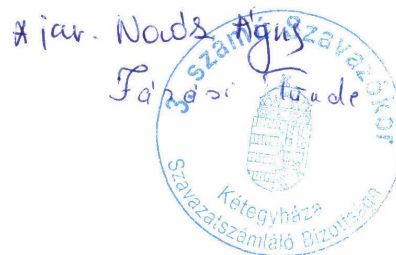 A jav. Nods Ágnes
Fázási Tünde
3. számú Szavazókör
Kétegyháza
Szavazatszámláló Bizottsága